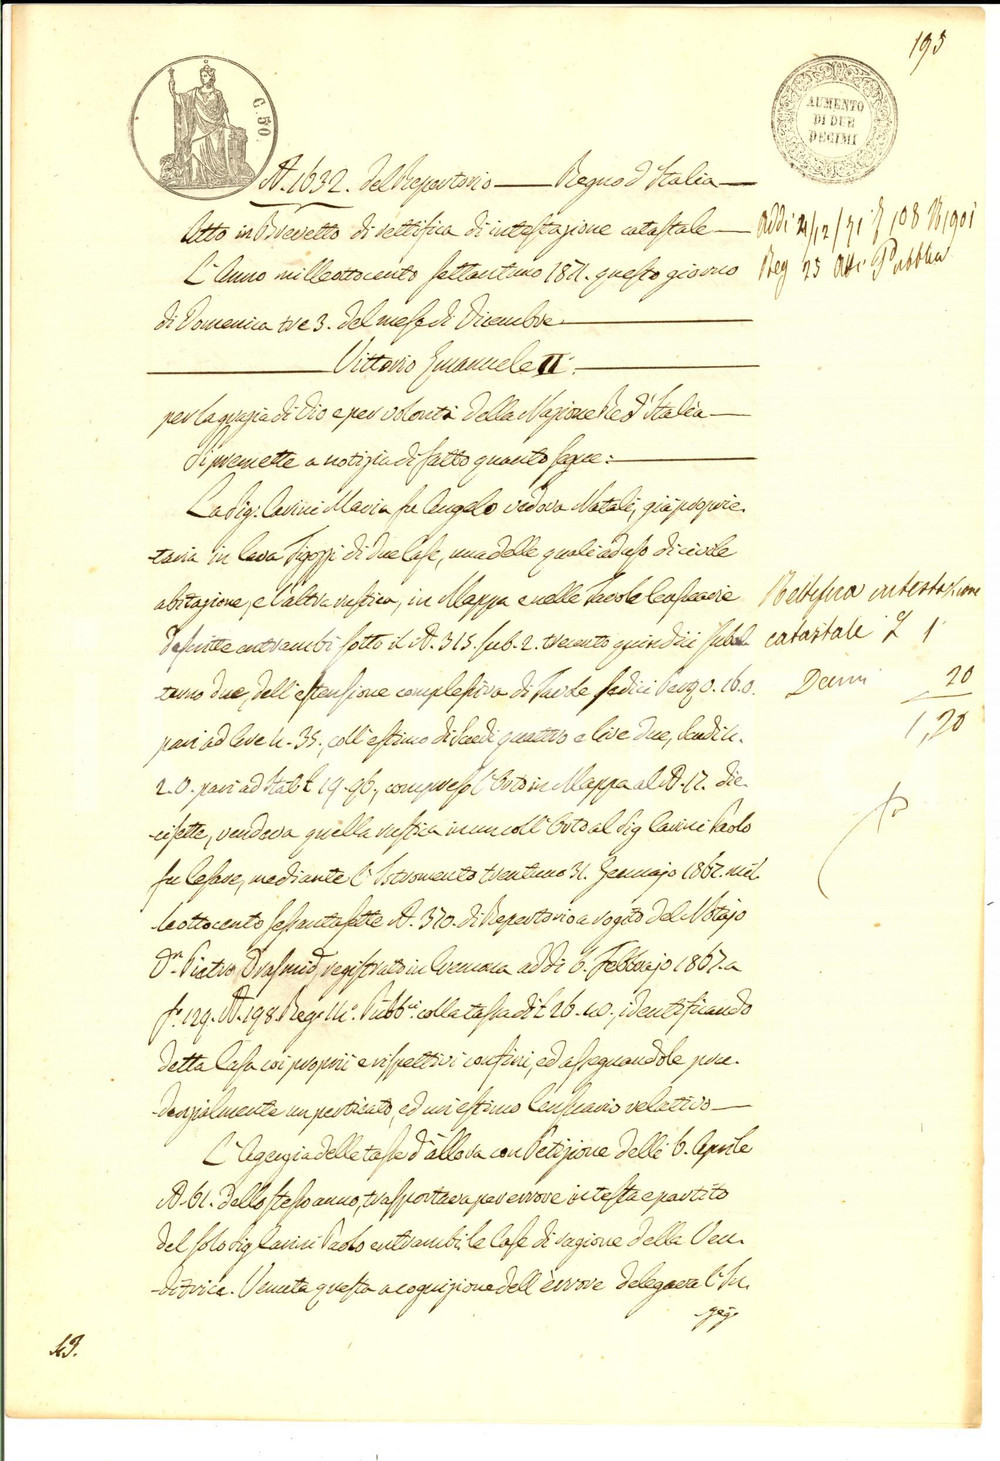 195
C. 50.
AUMENTO
DI DUE
DECIMI
N. 1632. del Repertorio — Regno d'Italia —
Atto in Brevetto di rettifica di intestazione catastale —
L'Anno milleottocento settantuno 1871. questo giorno
di Domenica tre 3. del mese di Dicembre
Vittorio Emanuele II.
per la grazia di Dio e per volontà della Nazione Re d'Italia —
Si premette a notizia di fatto quanto segue:
La Sig.ª Cavini Maria fu Angelo vedova Natali, già proprie-
taria in Cava Tigozzi di due Case, una delle quali ad uso di civile
abitazione, e l'altra rustica, in Mappa e nelle Tavole Censuarie
descritte entrambi sotto il N. 315. sub. 2. trecento quindici subal-
terno due, dell'estensione complessiva di Tavole sedici Pert. 0. 16. 0.
pari ad Are n. 35., coll'estimo di Scudi quattro e lire due, Scudi 4.
2. 0. pari ad Ital. £ 19. 96., compreso l'Orto in Mappa al N. 17. die-
cisette, vendeva quella rustica in un coll'Orto al Sig. Cavini Paolo
fu Cesare, mediante l'Istromento trentuno 31. Gennajo 1867. mil-
leottocento sessantasette N. 370. di Repertorio a rogito del Notajo
D.r Pietro registrato in Cremona addì 6. Febbrajo 1867. a
f.º 129. N. 198. Reg.º Pubb.ci colla tassa di £ 26. 40., identificando
detta Casa coi proprii e rispettivi confini, ed assegnandole pru-
denzialmente un perticato, ed un estimo Censuario relativo —
L'Agenzia delle tasse d'allora con Petizione delli 6. Aprile
N. 61. dello stesso anno, trasportava per errore in testa e partita
del solo Sig. Cavini Paolo entrambi le Case di ragione della Ven-
ditrice. Venuta questa a cognizione dell'errore delegava l'In-
geg.
Addì 21/12/71 f 108 N 1901
Reg 23 Atti Pubblici
Rettifica intestazione
catastale £ 1
Decimi 20
1,20